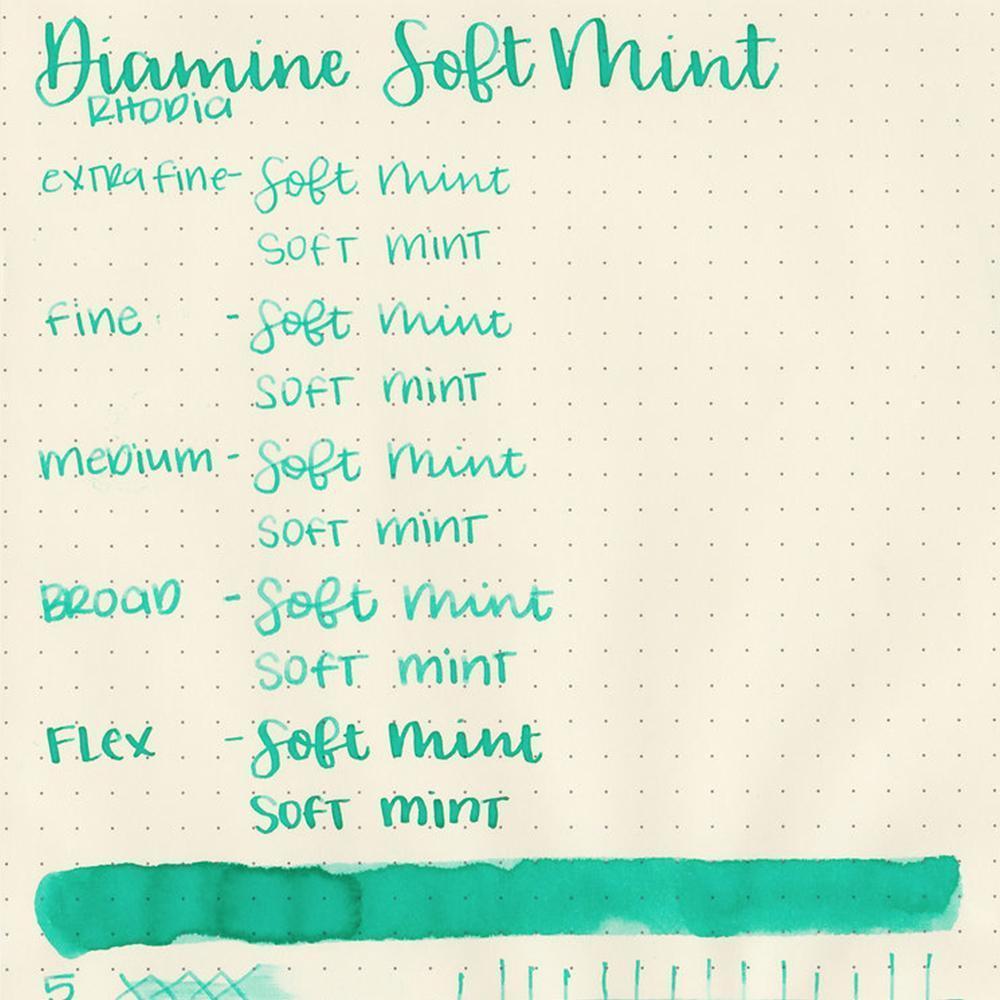 Diamine Soft Mint
RHODia
extra fine- Soft Mint
SOFT minT
fine - Soft Mint
SOFT minT
meDium - Soft Mint
SOFT minT
BROaD - Soft Mint
SOFT minT
FLex - Soft Mint
SOFT minT
5